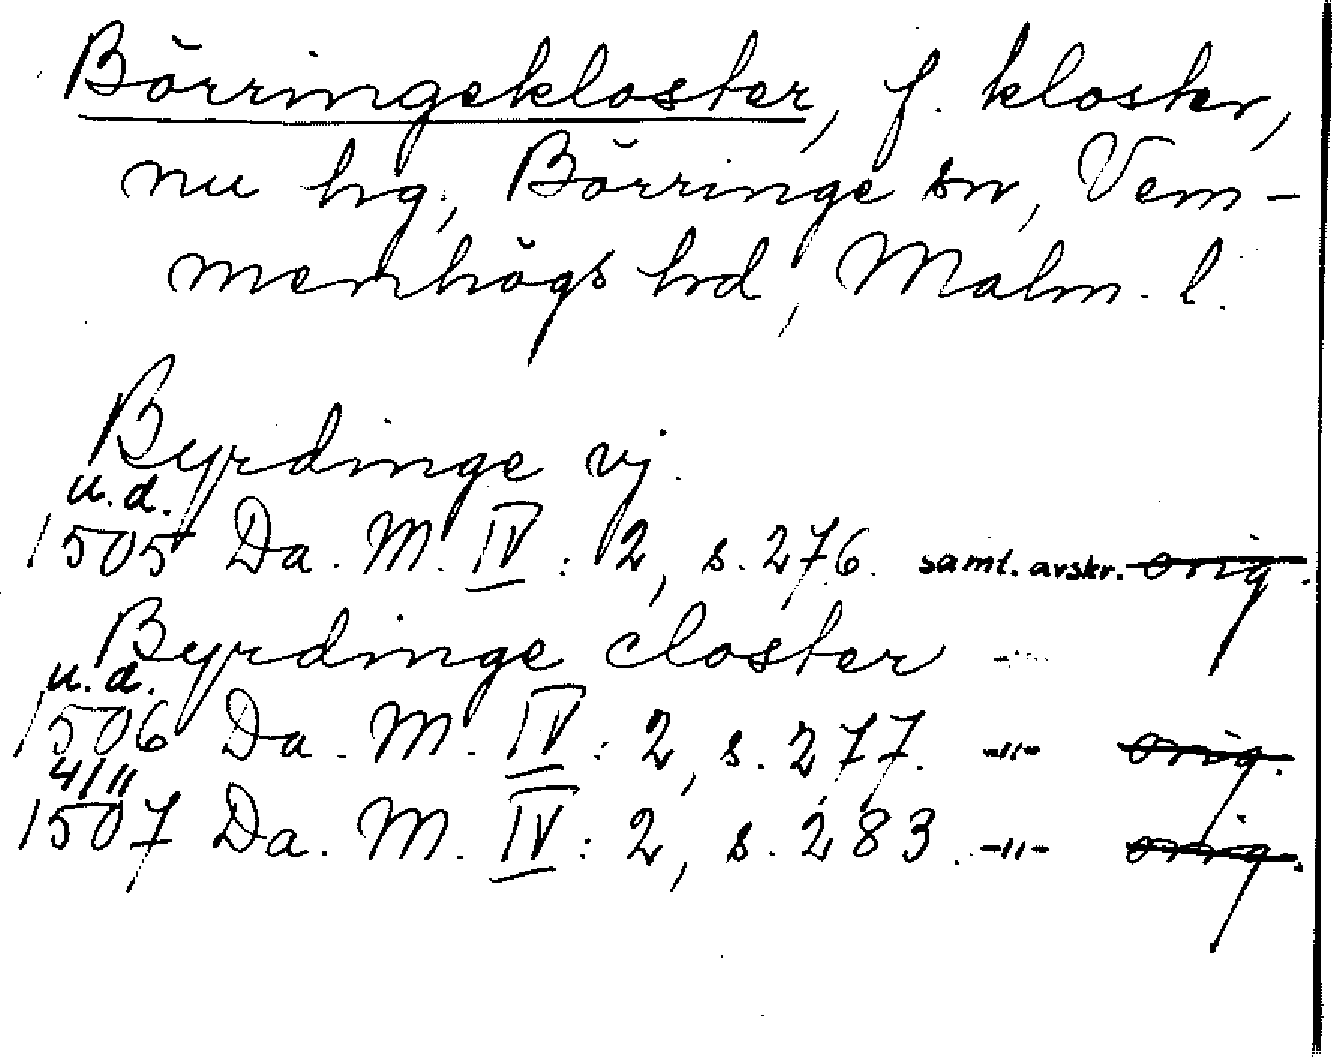 Börringekloster, f. kloster,
nu hg, Börringe sn, Vem-
menhögs hd, Malm. l.
Byrdinge vj.
u. d.
1505 Da. M. IV : 2, s. 276. saml. avskr. orig.
Byrdinge closter
u. d.
1506 Da. M. IV : 2, s. 277. -"- orig.
4/11
1507 Da. M. IV : 2, s. 283. -"- orig.